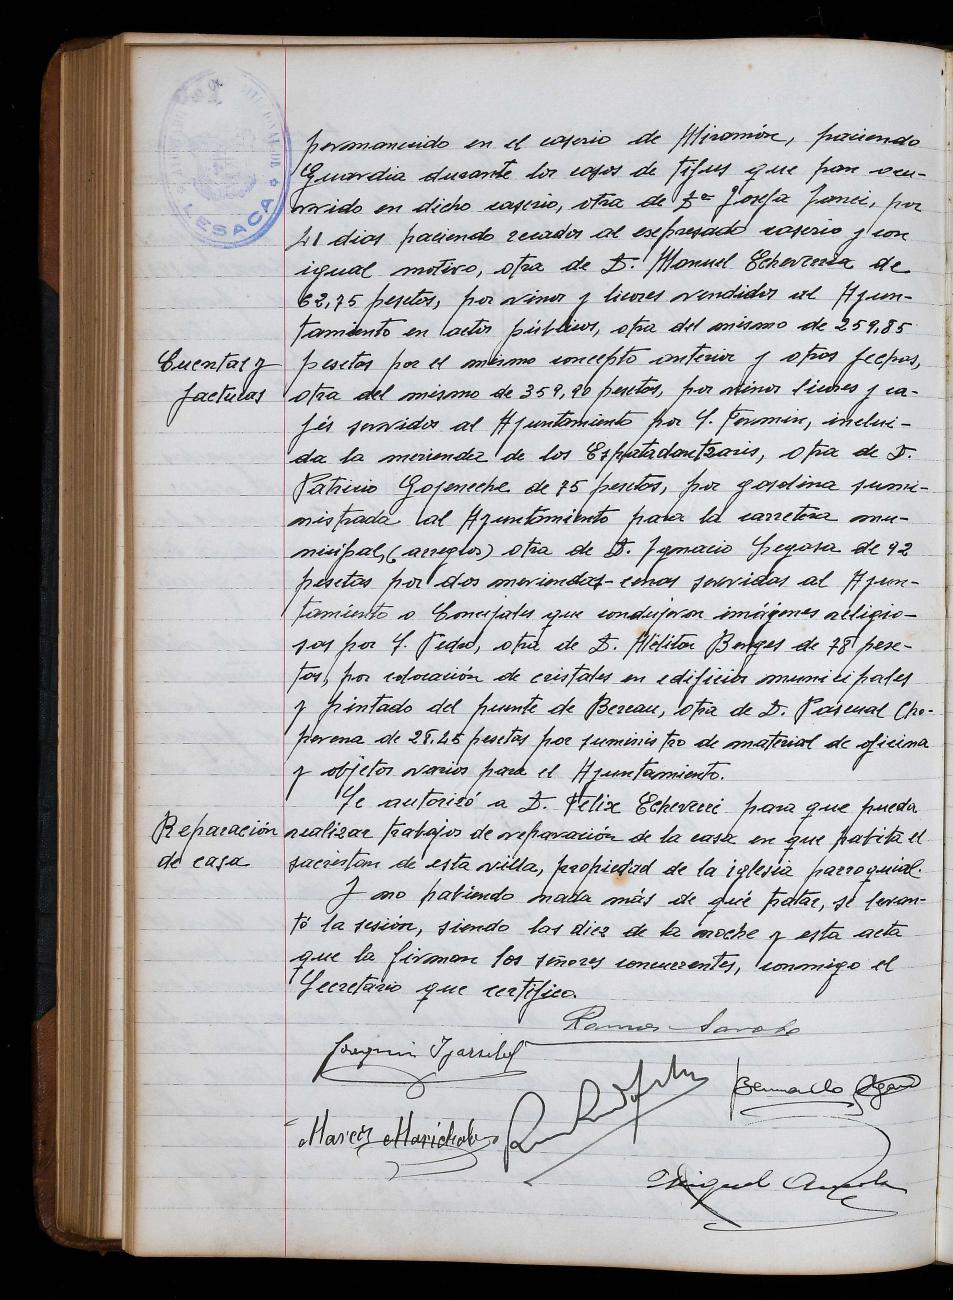 LESACA
permanecido en el caserio de Miramón, haciendo
Guardia durante los casos de tifus que han ocu-
rrido en dicho caserio, otra de Dª Josefa Janci, por
21 dias haciendo recados al expresado caserio y con
igual motivo, otra de D. Manuel Echeverria de
62,75 pesetas, por vinos y licores vendidos al Ayun-
tamiento en actos públicos, otra del mismo de 259,85
Cuentas y
pesetas por el mismo concepto anterior y otras fechas,
facturas
otra del mismo de 359,90 pesetas, por vinos licores y ca-
fés servidos al Ayuntamiento por S. Fermin, inclui-
da la merienda de los Ezpatadantzaris, otra de D.
Patricio Goyeneche de 75 pesetas, por gasolina sumi-
nistrada al Ayuntamiento para la carretera mu-
nicipal, (arreglos) otra de D. Ygnacio Legasa de 92
pesetas por dos meriendas-cenas servidas al Ayun-
tamiento o Concejales que condujeron imágenes religio-
sas por S. Pedro, otra de D. Méliton Benges de 78 pese-
tas, por colocación de cristales en edificios municipales
y pintado del puente de Bereau, otra de D. Pascual Cho-
perena de 28.45 pesetas por suministro de material de oficina
y objetos varios para el Ayuntamiento.
Se autorizó a D. Felix Echeverri para que pueda
Reparación
realizar trabajos de reparación de la casa en que habita el
de casa
sacristan de esta villa, propiedad de la iglesia parroquial.
Y no habiendo nada más de qué tratar, se levan-
tó la sesión, siendo las diez de la noche y esta acta
que la firman los señores concurrentes, conmigo el
Secretario que certifico.
Ramon
Joaquin
Bernardo
Marcos Marichalar
Miguel